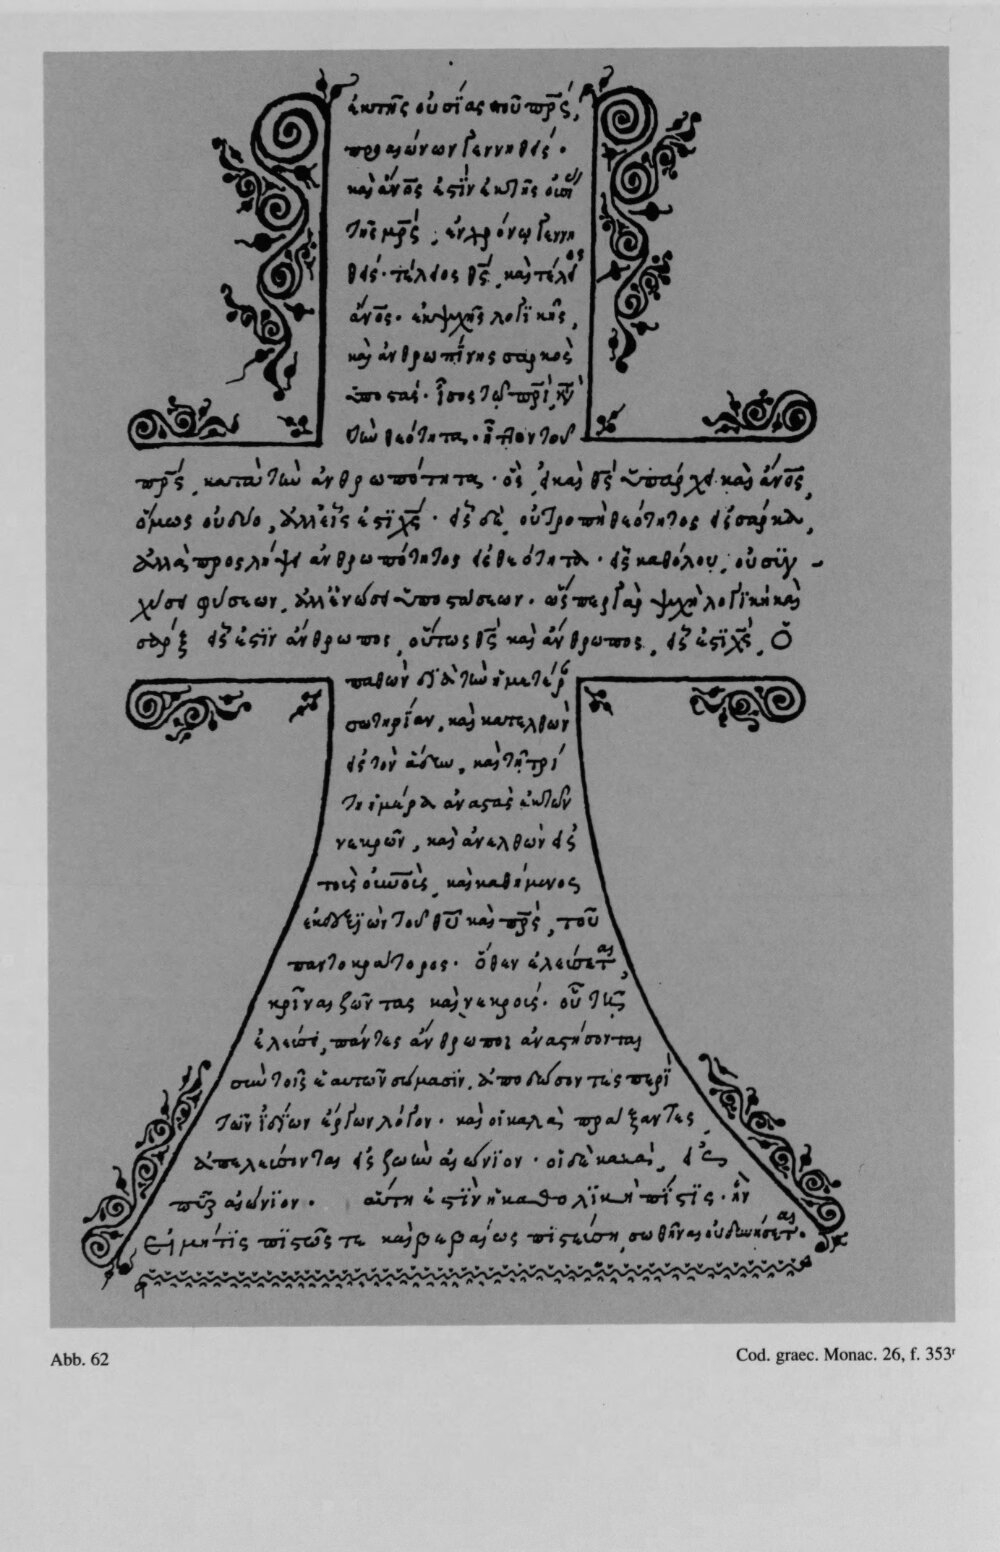 ἐκ τῆς οὐσίας τοῦ πρς,
πρὸ αἰώνων γεννηθείς·
καὶ ἄνος ἐστὶν ἐκ τῆς οὐσί
τῆς μρς, ἐν χρόνω γεννη
θείς· τέλειος θς, καὶ τέλειος
ἄνος· ἐκ ψυχῆς λογικῆς,
καὶ ἀνθρωπίνης σαρκὸς
ὑποστάς· ἴσος τῶ πρὶ κτ
τὴν θεότητα· ἥττον τοῦ
πρς, κατὰ τὴν ἀνθρωπότητα· ὃς, εἰ καὶ θς ὑπάρχει καὶ ἄνος,
ὅμως οὐ δύο, ἀλλ' εἷς ἐστὶ χς· εἷς δὲ, οὐ τροπῆ θεότητος εἰς σάρκα,
ἀλλὰ προσλήψει ἀνθρωπότητος εἰς θεότητα· εἷς καθόλου, οὐ συγ-
χύσει φύσεων, ἀλλ' ἑνώσει ὑποστάσεων· ὥσπερ γὰρ ψυχὴ λογικὴ καὶ
σὰρξ εἷς ἐστὶν ἄνθρωπος, οὕτως θς καὶ ἄνθρωπος, εἷς ἐστὶ χς, Ὁ
παθὼν διὰ τὴν ἡμετέρ
σωτηρίαν, καὶ κατελθὼν
εἰς τὸν ἅδην, καὶ τῆ τρί
τη ἡμέρα ἀναστὰς ἐκ τῶν
νεκρῶν, καὶ ἀνελθὼν εἰς
τοὺς οὐνοὺς, καὶ καθήμενος
ἐκ δεξιῶν τοῦ θυ καὶ πρς, τοῦ
παντοκράτορος· ὅθεν ἐλεύσεται,
κρῖναι ζῶντας καὶ νεκρούς· οὗ τῆ
ἐλεύσει, πάντες ἄνθρωποι ἀναστήσονται
σὺν τοῖς ἑαυτῶν σώμασιν, ἀποδώσοντες περὶ
τῶν ἰδίων ἔργων λόγον· καὶ οἱ καλὰ πράξαντες,
ἀπελεύσονται εἰς ζωὴν αἰώνιον· οἱ δὲ κακὰ, εἰς
πῦρ αἰώνιον· αὕτη ἐστὶν ἡ καθολικὴ πίστις· ἣν
Εἰ μήτις πιστῶς τε καὶ βεβαίως πιστεύση, σωθῆναι οὐ δυνήσεται·
Abb. 62
Cod. graec. Monac. 26, f. 353r